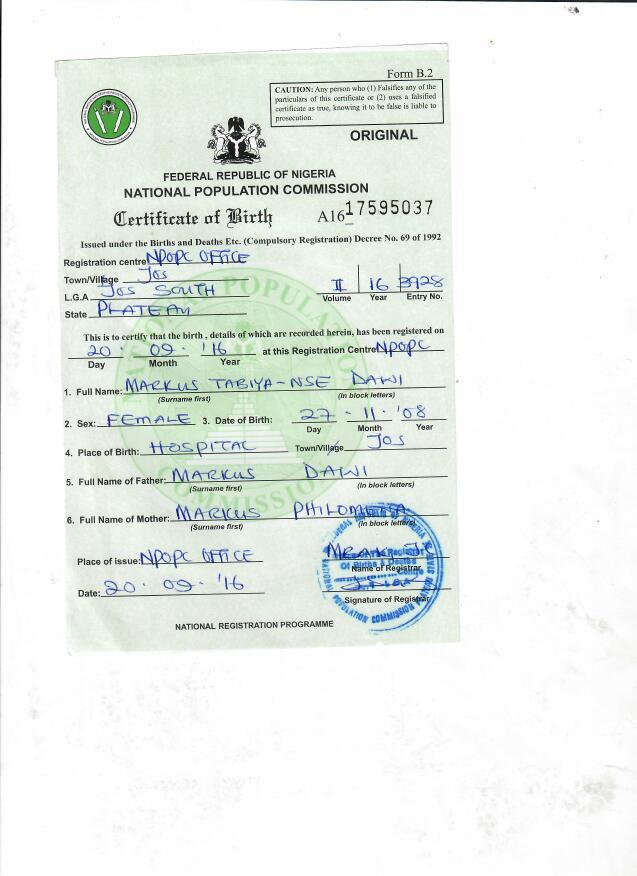 Form B.2
CAUTION: Any person who (1) Falsifies any of the
particulars of this certificate or (2) uses a falsified
certificate as true, knowing it to be false is liable to
prosecution.
ORIGINAL
FEDERAL REPUBLIC OF NIGERIA
NATIONAL POPULATION COMMISSION
Certificate of Birth A16 17595037
Issued under the Births and Deaths Etc. (Compulsory Registration) Decree No. 69 of 1992
Registration centre NPOPC OFFICE
Town/Village Jos
L.G.A Jos SOUTH II 16 3928
Volume Year Entry No.
State PLATEAU
This is to certify that the birth , details of which are recorded herein, has been registered on
20 . 09 . '16 at this Registration Centre NPOPC
Day Month Year
1. Full Name: MARKUS TABIYA-NSE DAWI
(Surname first) (In block letters)
2. Sex: FEMALE 3. Date of Birth: 27 - 11 - '08
Day Month Year
4. Place of Birth: HOSPITAL Town/Village Jos
5. Full Name of Father: MARKUS DAWI
(Surname first) (In block letters)
6. Full Name of Mother: MARKUS PHILOMENA
(Surname first) (In block letters)
Place of issue: NPOPC OFFICE
Name of Registrar
Date: 20 . 09 . '16
Signature of Registrar
NATIONAL REGISTRATION PROGRAMME
NATIONAL POPULATION COMMISSION
Of Births & Deaths